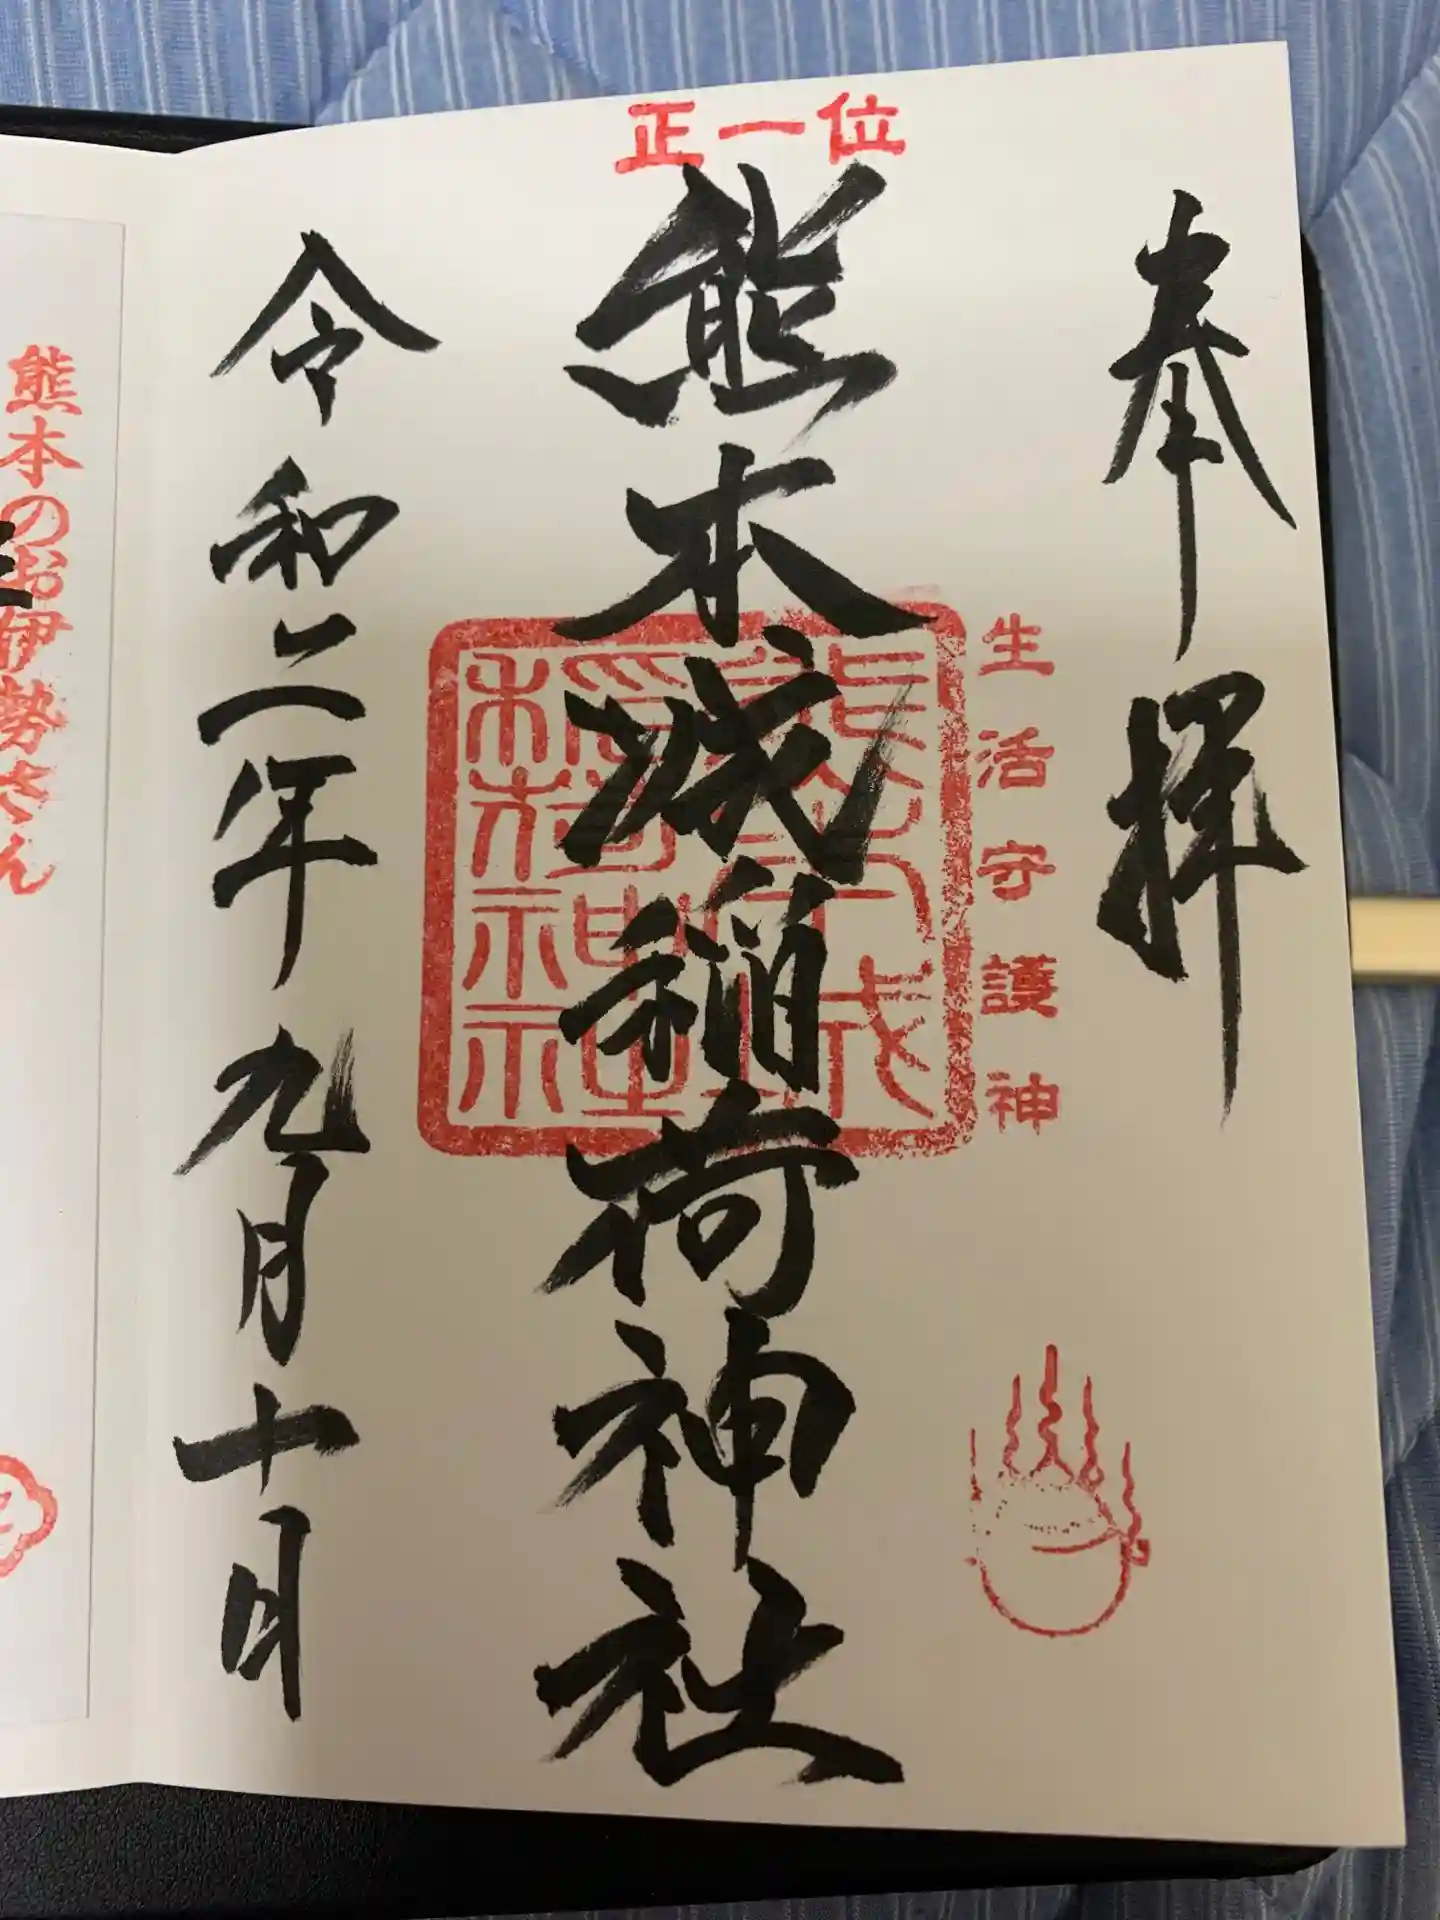 奉拝
生活守護神
正一位
熊本城稲荷神社
熊本城稲荷神社
令和二年九月十日
熊本のお伊勢さん